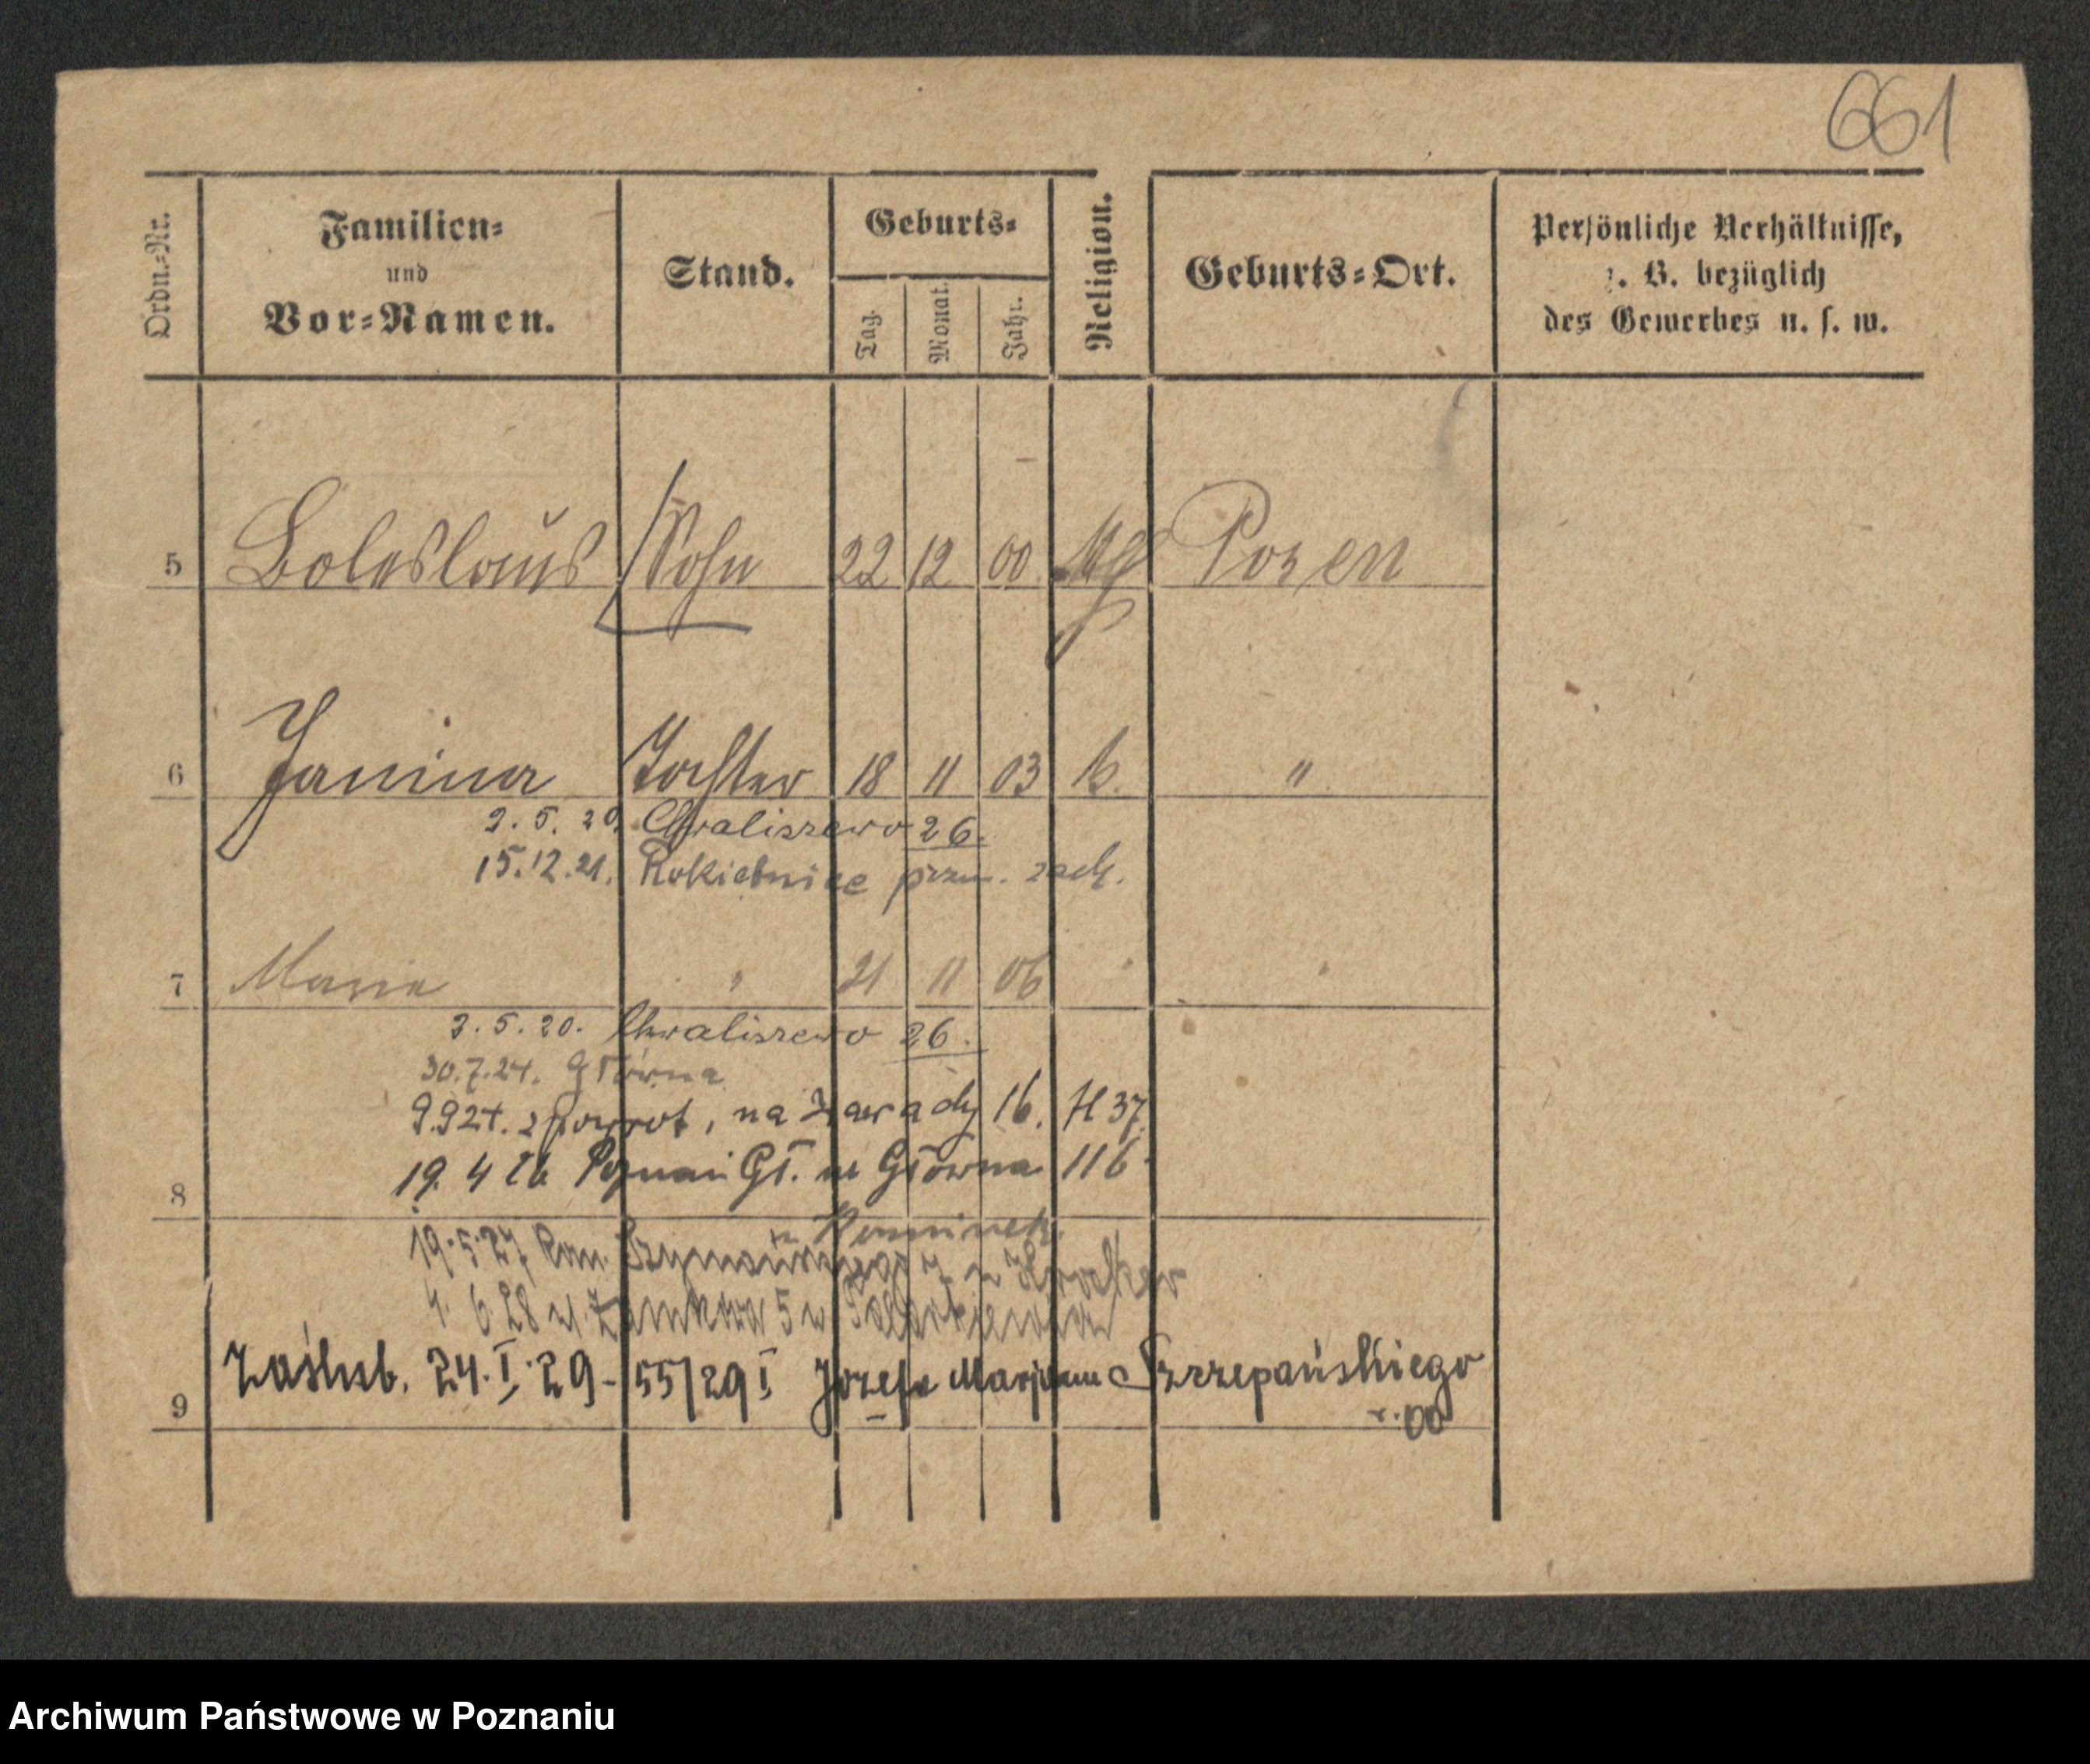 661
Ordn.-Nr.
Familien-
und
Vor-Namen.
Stand.
Geburts-
Tag.
Monat.
Jahr.
Religion.
Geburts-Ort.
Persönliche Verhältnisse,
z. B. bezüglich
des Gewerbes u. s. w.
5 Boleslaus Sohn 22 12 00 Posen
6 Janina Tochter 18 11 03 k. "
2. 5. 20. Chwaliszewo 26.
15.12.21. Rokietnice pzn. zach.
7 Maria " 21 11 06 " "
2. 5. 20. Chwaliszewo 26.
30.7.24. Główna
9.9 24. z powrot, na Zawady 16. H 37.
8 19. 4 26 Poznań Gł. Główna 116
19.5.27
4. 6. 28 ul. Zamkowa 5
9 Zaślub. 24. I. 29 - 55/29 I Józefa Marjana Szczepańskiego
r. 00
Archiwum Państwowe w Poznaniu